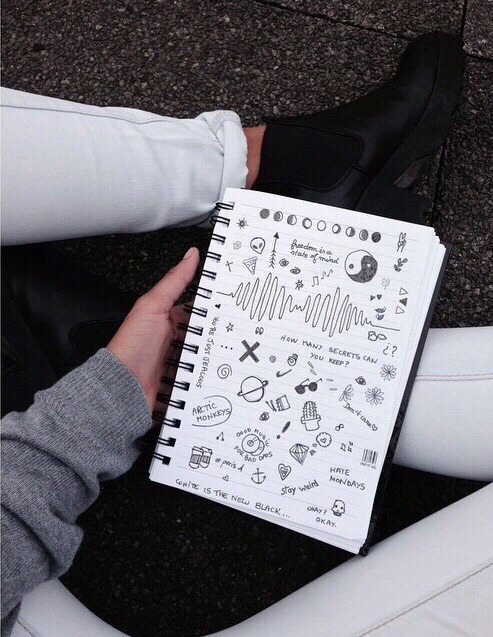 freedom is a
state of mind
HOW MANY SECRETS CAN
YOU KEEP?
¿?
YOU'RE JUST JEALOUS
ARCTIC
MONKEYS
Don't care
GOOD MUSIC
FOR BAD DAYS
#paris
HATE
MONDAYS
stay weird
OKAY?
OKAY.
WHITE IS THE NEW BLACK...